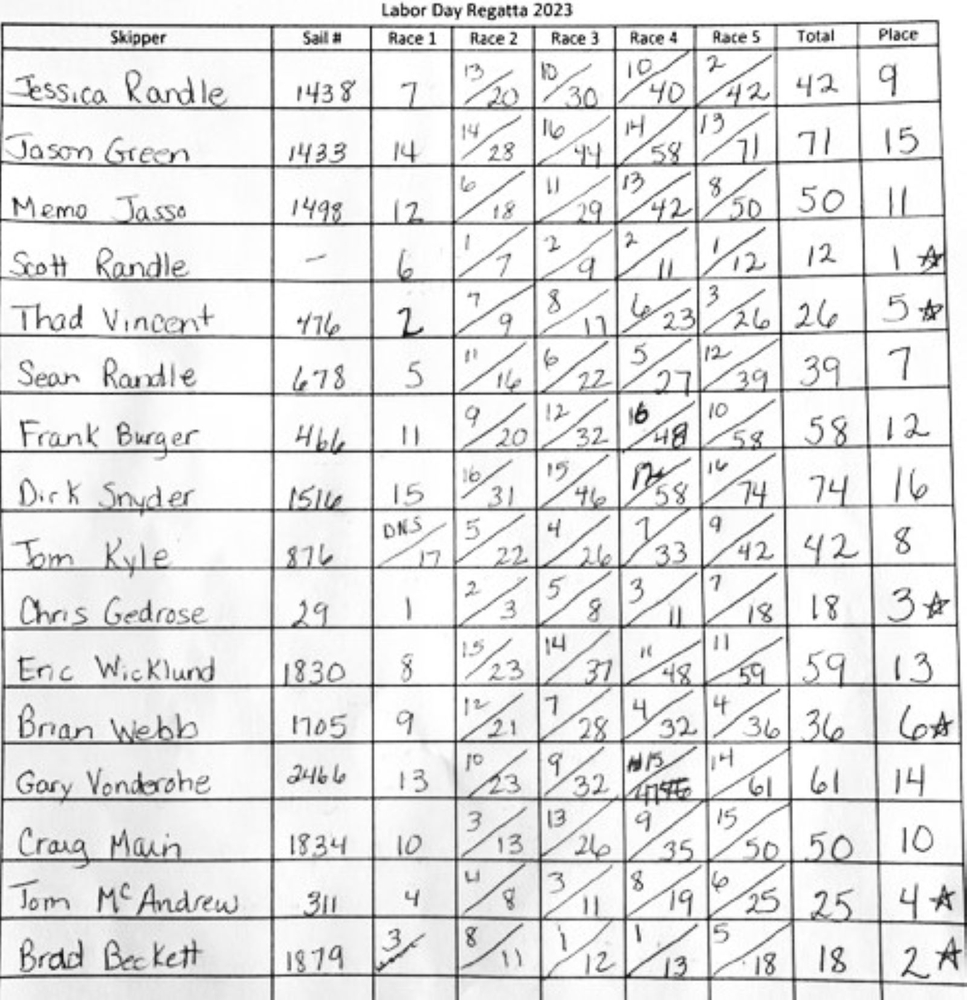 Labor Day Regatta 2023
Skipper Sail # Race 1 Race 2 Race 3 Race 4 Race 5 Total Place
Jessica Randle 1438 7 13/20 10/30 10/40 2/42 42 9
Jason Green 1433 14 14/28 16/44 14/58 13/71 71 15
Memo Jasso 1498 12 6/18 11/29 13/42 8/50 50 11
Scott Randle - 6 1/7 2/9 2/11 1/12 12 1 ☆
Thad Vincent 476 2 7/9 8/17 6/23 3/26 26 5 ☆
Sean Randle 678 5 11/16 6/22 5/27 12/39 39 7
Frank Burger 466 11 9/20 12/32 16/48 10/58 58 12
Dirk Snyder 1516 15 16/31 15/46 12/58 16/74 74 16
Tom Kyle 876 DNS/17 5/22 4/26 7/33 9/42 42 8
Chris Gedrose 29 1 2/3 5/8 3/11 7/18 18 3 ☆
Eric Wicklund 1830 8 15/23 14/37 11/48 11/59 59 13
Brian Webb 1705 9 12/21 7/28 4/32 4/36 36 6 ☆
Gary Vonderohe 2466 13 10/23 9/32 15/ 14/61 61 14
Craig Main 1834 10 3/13 13/26 9/35 15/50 50 10
Tom McAndrew 311 4 4/8 3/11 8/19 6/25 25 4 ☆
Brad Beckett 1879 3 8/11 1/12 1/13 5/18 18 2 ☆